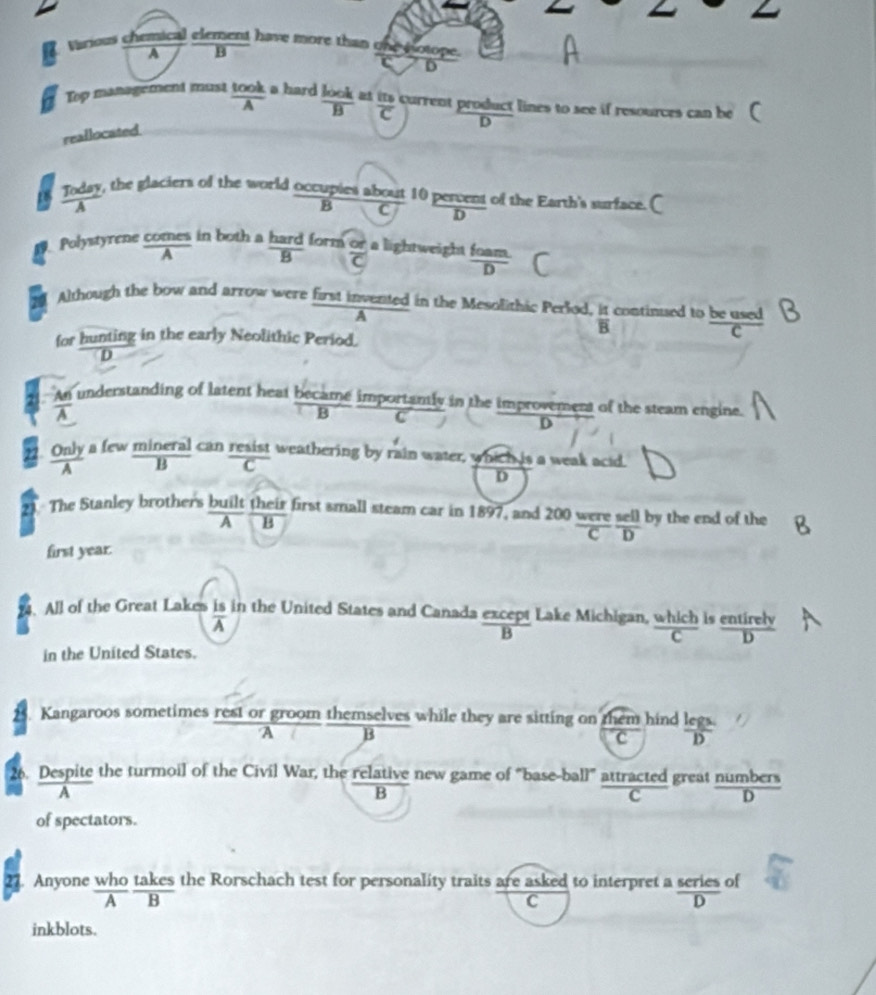 Various chemical element have more than one isotope. A
A B C D
17 Top management must took a hard look at its current product lines to see if resources can be C
A B C D
reallocated.
18 Today, the glaciers of the world occupies about 10 percent of the Earth's surface. C
A B C D
19. Polystyrene comes in both a hard form or a lightweight foam. C
A B C D
20 Although the bow and arrow were first invented in the Mesolithic Period, it continued to be used B
A B C
for hunting in the early Neolithic Period.
D
21. An understanding of latent heat became importantly in the improvement of the steam engine. A
A B C D
22. Only a few mineral can resist weathering by rain water, which is a weak acid. D
A B C D
23. The Stanley brothers built their first small steam car in 1897, and 200 were sell by the end of the B
A B C D
first year.
24. All of the Great Lakes is in the United States and Canada except Lake Michigan, which is entirely A
A B C D
in the United States.
25. Kangaroos sometimes rest or groom themselves while they are sitting on them hind legs.
A B C D
26. Despite the turmoil of the Civil War, the relative new game of "base-ball" attracted great numbers
A B C D
of spectators.
27. Anyone who takes the Rorschach test for personality traits are asked to interpret a series of
A B C D
inkblots.